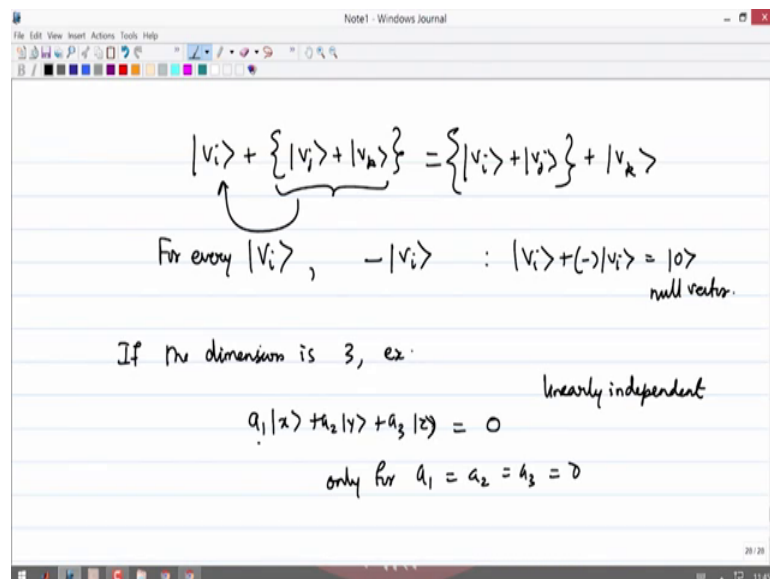 Note1 - Windows Journal
File Edit View Insert Actions Tools Help
B I
|vi> + {|vj> + |vk>} = {|vi> + |vj>} + |vk>
For every |Vi>, -|vi> : |vi> + (-)|vi> = |0>
null vector.
If the dimension is 3, ex.
linearly independent
a1|x> + a2|y> + a3|z> = 0
only for a1 = a2 = a3 = 0
28/28